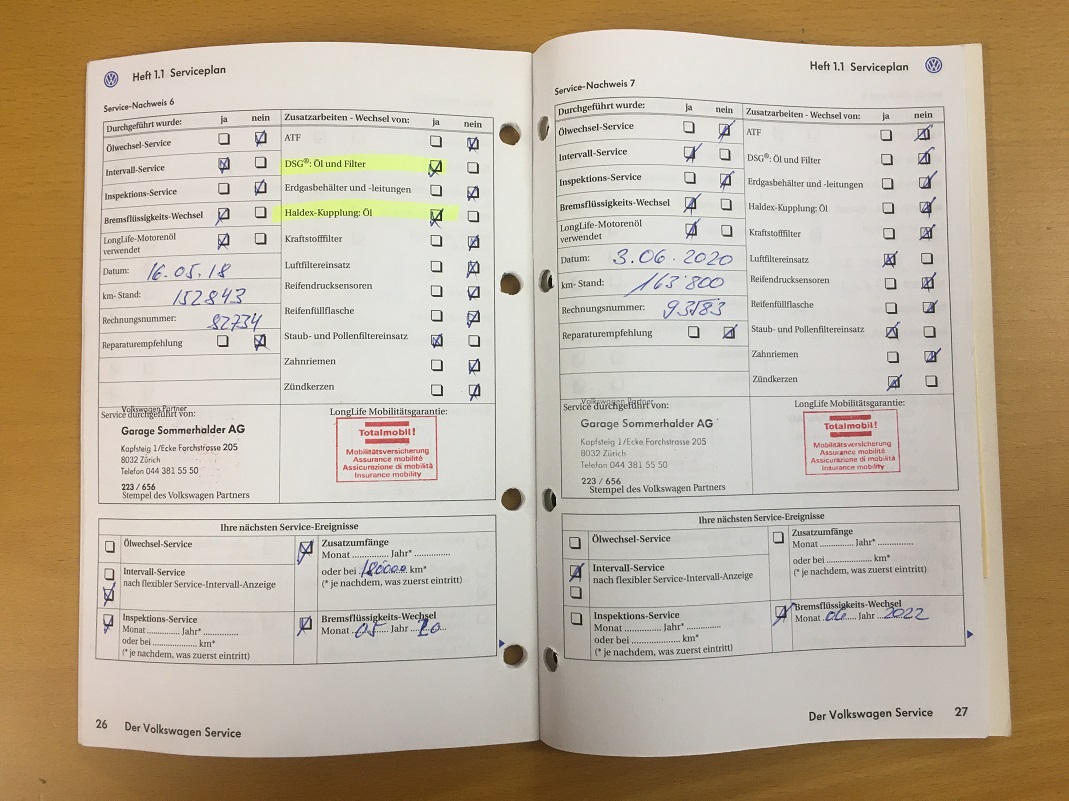 Heft 1.1 Serviceplan
Service-Nachweis 6
Durchgeführt wurde: ja nein
Ölwechsel-Service
Intervall-Service
Inspektions-Service
Bremsflüssigkeits-Wechsel
LongLife-Motorenöl
verwendet
Datum: 16.05.18
km- Stand: 152843
Rechnungsnummer: 82734
Reparaturempfehlung
Zusatzarbeiten - Wechsel von: ja nein
ATF
DSG®: Öl und Filter
Erdgasbehälter und -leitungen
Haldex-Kupplung: Öl
Kraftstofffilter
Luftfiltereinsatz
Reifendrucksensoren
Reifenfüllflasche
Staub- und Pollenfiltereinsatz
Zahnriemen
Zündkerzen
Service durchgeführt von:
Volkswagen Partner
Garage Sommerhalder AG
Kapfsteig 1/Ecke Forchstrasse 205
8032 Zürich
Telefon 044 381 55 50
223 / 656
Stempel des Volkswagen Partners
LongLife Mobilitätsgarantie:
Totalmobil!
Mobilitätsversicherung
Assurance mobilité
Assicurazione di mobilità
Insurance mobility
Ihre nächsten Service-Ereignisse
Ölwechsel-Service
Intervall-Service
nach flexibler Service-Intervall-Anzeige
Inspektions-Service
Monat ........... Jahr* ..............
oder bei ...................... km*
(* je nachdem, was zuerst eintritt)
Zusatzumfänge
Monat ............... Jahr* ...............
oder bei 180000 km*
(* je nachdem, was zuerst eintritt)
Bremsflüssigkeits-Wechsel
Monat 05 Jahr 20
26 Der Volkswagen Service
Heft 1.1 Serviceplan
Service-Nachweis 7
Durchgeführt wurde: ja nein
Ölwechsel-Service
Intervall-Service
Inspektions-Service
Bremsflüssigkeits-Wechsel
LongLife-Motorenöl
verwendet
Datum: 3.06.2020
km- Stand: 163'800
Rechnungsnummer: 93583
Reparaturempfehlung
Zusatzarbeiten - Wechsel von: ja nein
ATF
DSG®: Öl und Filter
Erdgasbehälter und -leitungen
Haldex-Kupplung: Öl
Kraftstofffilter
Luftfiltereinsatz
Reifendrucksensoren
Reifenfüllflasche
Staub- und Pollenfiltereinsatz
Zahnriemen
Zündkerzen
Service durchgeführt von:
Volkswagen Partner
Garage Sommerhalder AG
Kapfsteig 1/Ecke Forchstrasse 205
8032 Zürich
Telefon 044 381 55 50
223 / 656
Stempel des Volkswagen Partners
LongLife Mobilitätsgarantie:
Totalmobil!
Mobilitätsversicherung
Assurance mobilité
Assicurazione di mobilità
Insurance mobility
Ihre nächsten Service-Ereignisse
Ölwechsel-Service
Intervall-Service
nach flexibler Service-Intervall-Anzeige
Inspektions-Service
Monat ........... Jahr* ..............
oder bei ...................... km*
(* je nachdem, was zuerst eintritt)
Zusatzumfänge
Monat ............... Jahr* ...............
oder bei ...................... km*
(* je nachdem, was zuerst eintritt)
Bremsflüssigkeits-Wechsel
Monat 06 Jahr 2022
Der Volkswagen Service 27